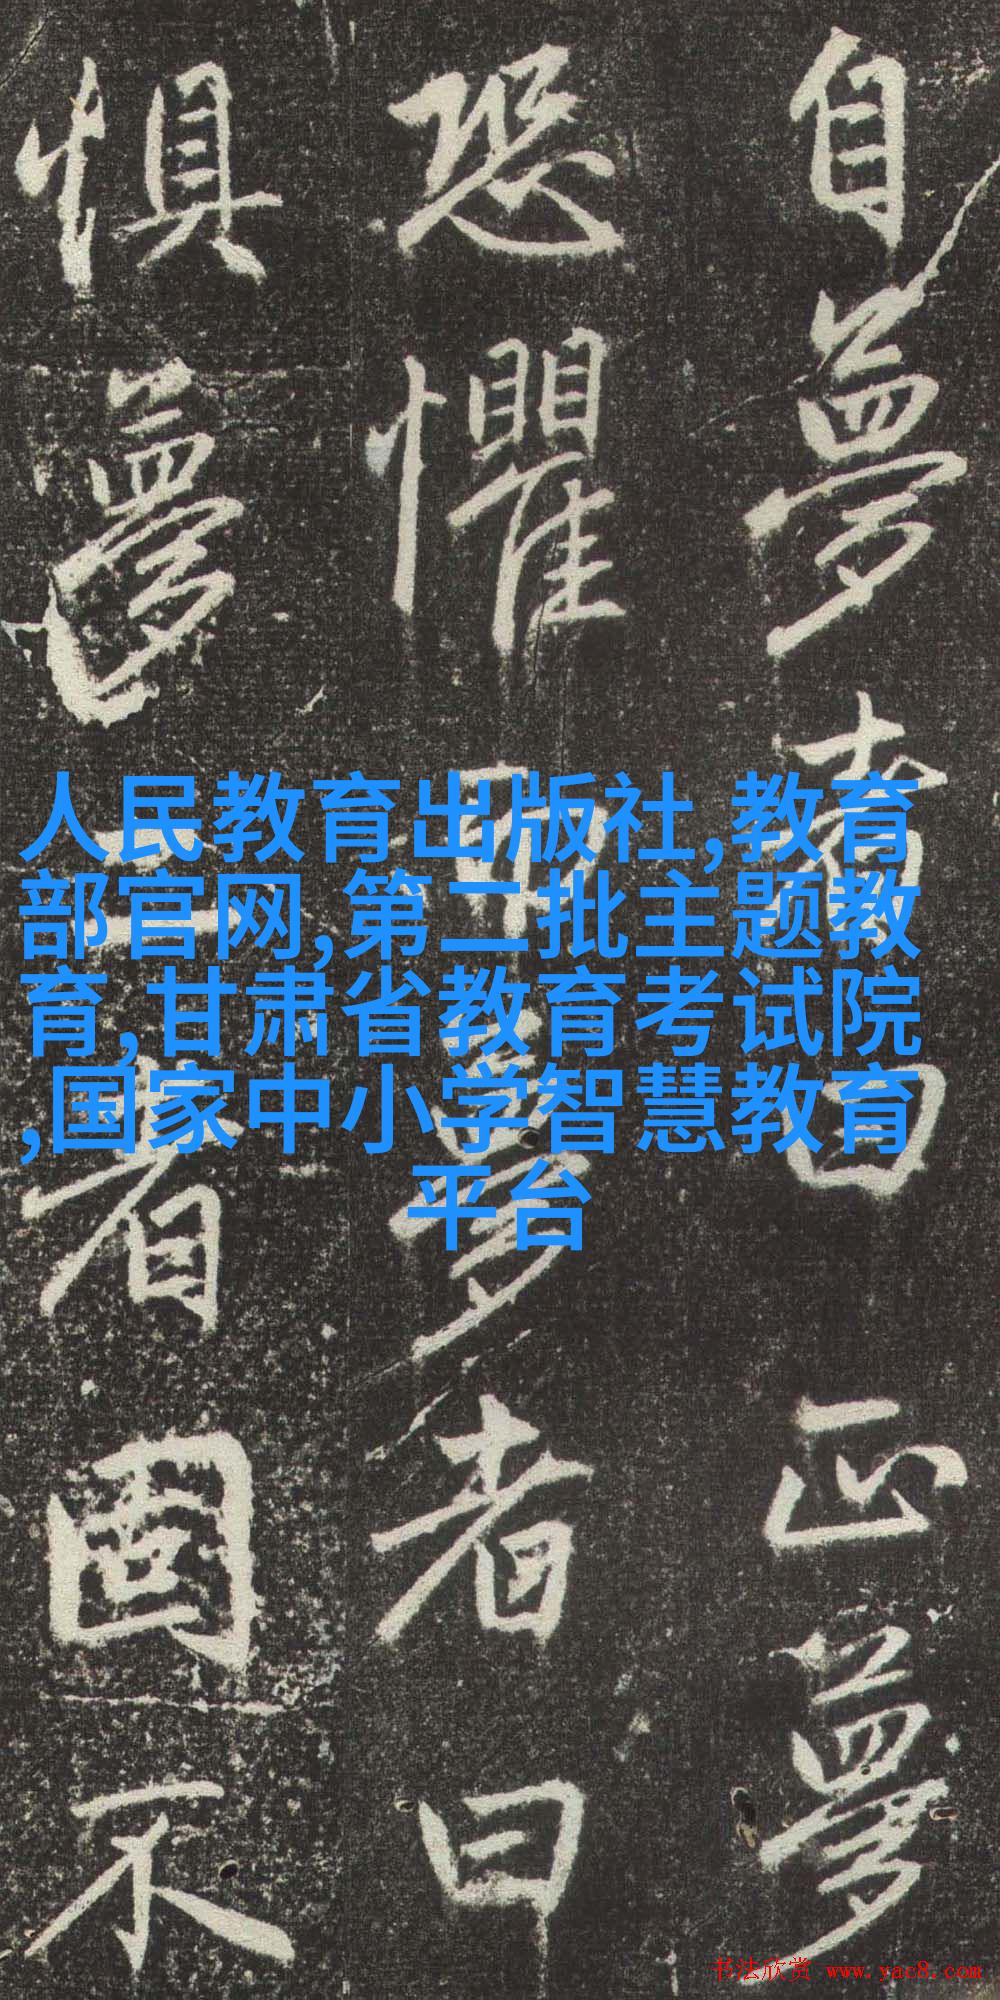 自夢者曰正夢
恐懼而夢者曰
惧夢二者固不
人民教育出版社,教育
部官网,第二批主题教
育,甘肃省教育考试院
,国家中小学智慧教育
平台
书法欣赏 www.yac8.com